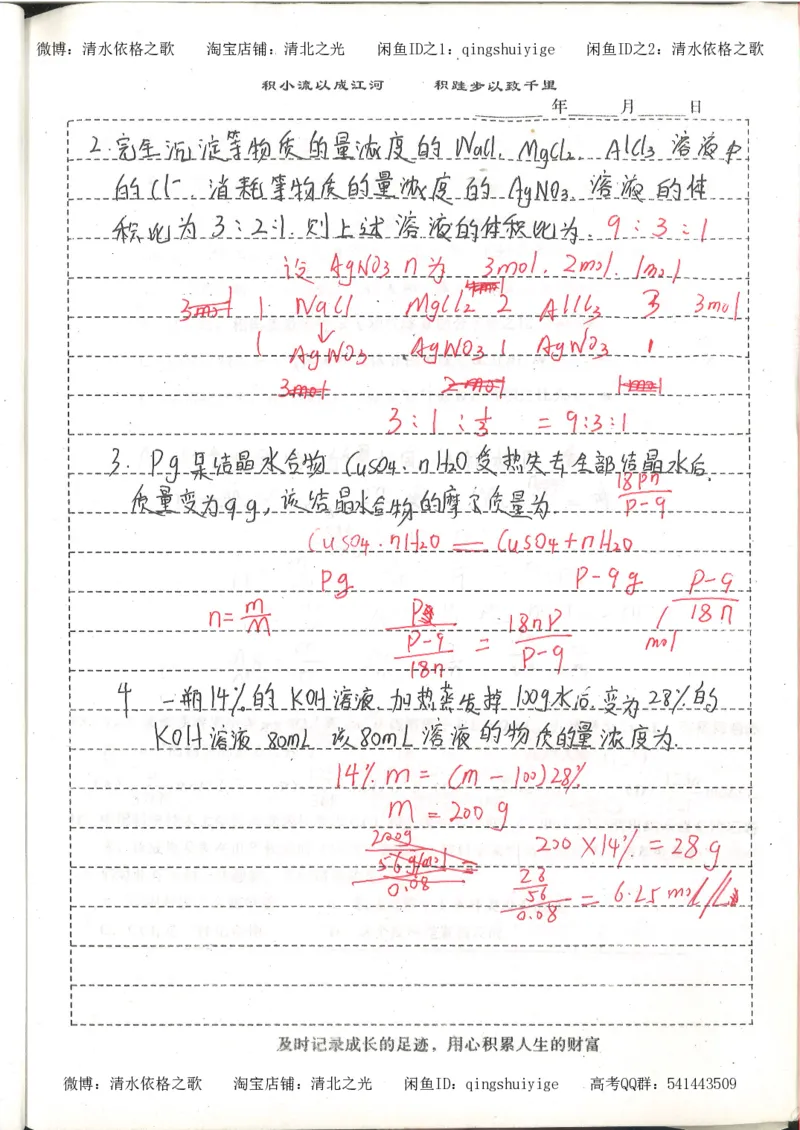 微博：清水依格之歌 淘宝店铺：清北之光 闲鱼ID之1：qingshuiyige 闲鱼ID之2：清水依格之歌
积小流以成江河 积跬步以致千里
年 月 日
2.完全沉淀等物质的量浓度的 NaCl. MgCl2. AlCl3 溶液中
的Cl-.消耗等物质的量浓度的 AgNO3.溶液的体
积比为 3:2:1.则上述溶液的体积比为. 9:3:1
设 AgNO3 n为 3mol. 2mol. 1mol
1 NaCl MgCl2 2 AlCl3 3 3mol
↓
1 AgNO3 AgNO3 1 AgNO3 1
3:1:1/3 = 9:3:1
3. Pg 某结晶水合物 CuSO4·nH2O受热失去全部结晶水后.
质量变为qg,该结晶水合物的摩尔质量为 18pn/p-q
CuSO4·nH2O = CuSO4+nH2O
Pg P-qg P-q/18n mol
n=m/M P/(P-q/18n) = 18nP/P-q
4 一瓶14%的KOH溶液.加热蒸发掉100g水后.变为28%的
KOH溶液 80mL 该80mL溶液的物质的量浓度为.
14% m = (m-100)28%
m=200g
200×14%=28g
28/56/0.08 = 6.25mol/L
及时记录成长的足迹，用心积累人生的财富
微博：清水依格之歌 淘宝店铺：清北之光 闲鱼ID：qingshuiyige 高考QQ群：541443509